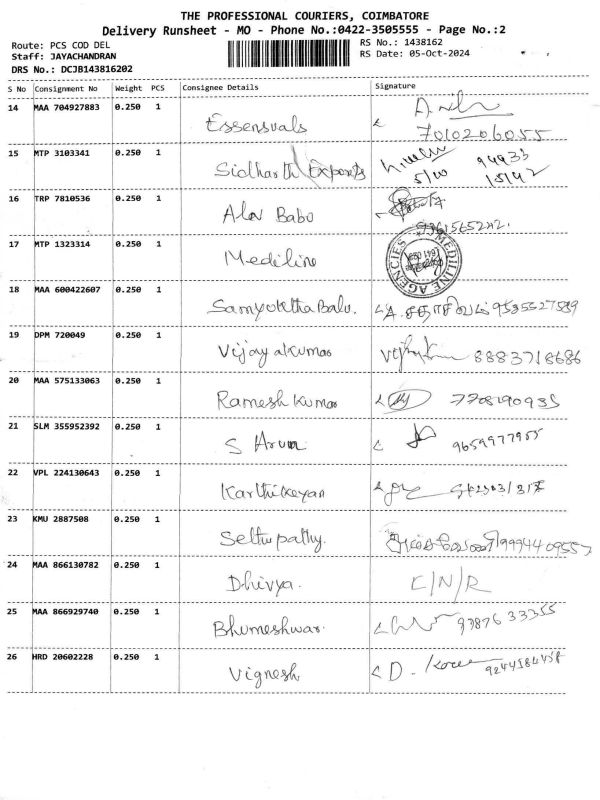 THE PROFESSIONAL COURIERS, COIMBATORE
Delivery Runsheet - MO - Phone No.:0422-3505555 - Page No.:2
Route: PCS COD DEL
Staff: JAYACHANDRAN
DRS No.: DCJB143816202
RS No.: 1438162
RS Date: 05-Oct-2024
S No Consignment No Weight PCS Consignee Details Signature
14 MAA 704927883 0.250 1 Essensuals
7010206055
15 MTP 3103341 0.250 1 Sidharth Exports
16 TRP 7810536 0.250 1 Alor Babu
17 MTP 1323314 0.250 1 Mediline
MEDILINE AGENCIES
18 MAA 600422607 0.250 1 Samyuktha Balu.
19 DPM 720049 0.250 1 Vijayakumar 8883718686
20 MAA 575133063 0.250 1 Ramesh Kumar 7708190935
21 SLM 355952392 0.250 1 S Arun 9659977955
22 VPL 224130643 0.250 1 Karthikeyan
23 KMU 2887508 0.250 1 Sethupathy. 9994409557
24 MAA 866130782 0.250 1 Dhivya. C/N/R
25 MAA 866929740 0.250 1 Bhumeshwar. 93876 33355
26 HRD 20602228 0.250 1 Vignesh